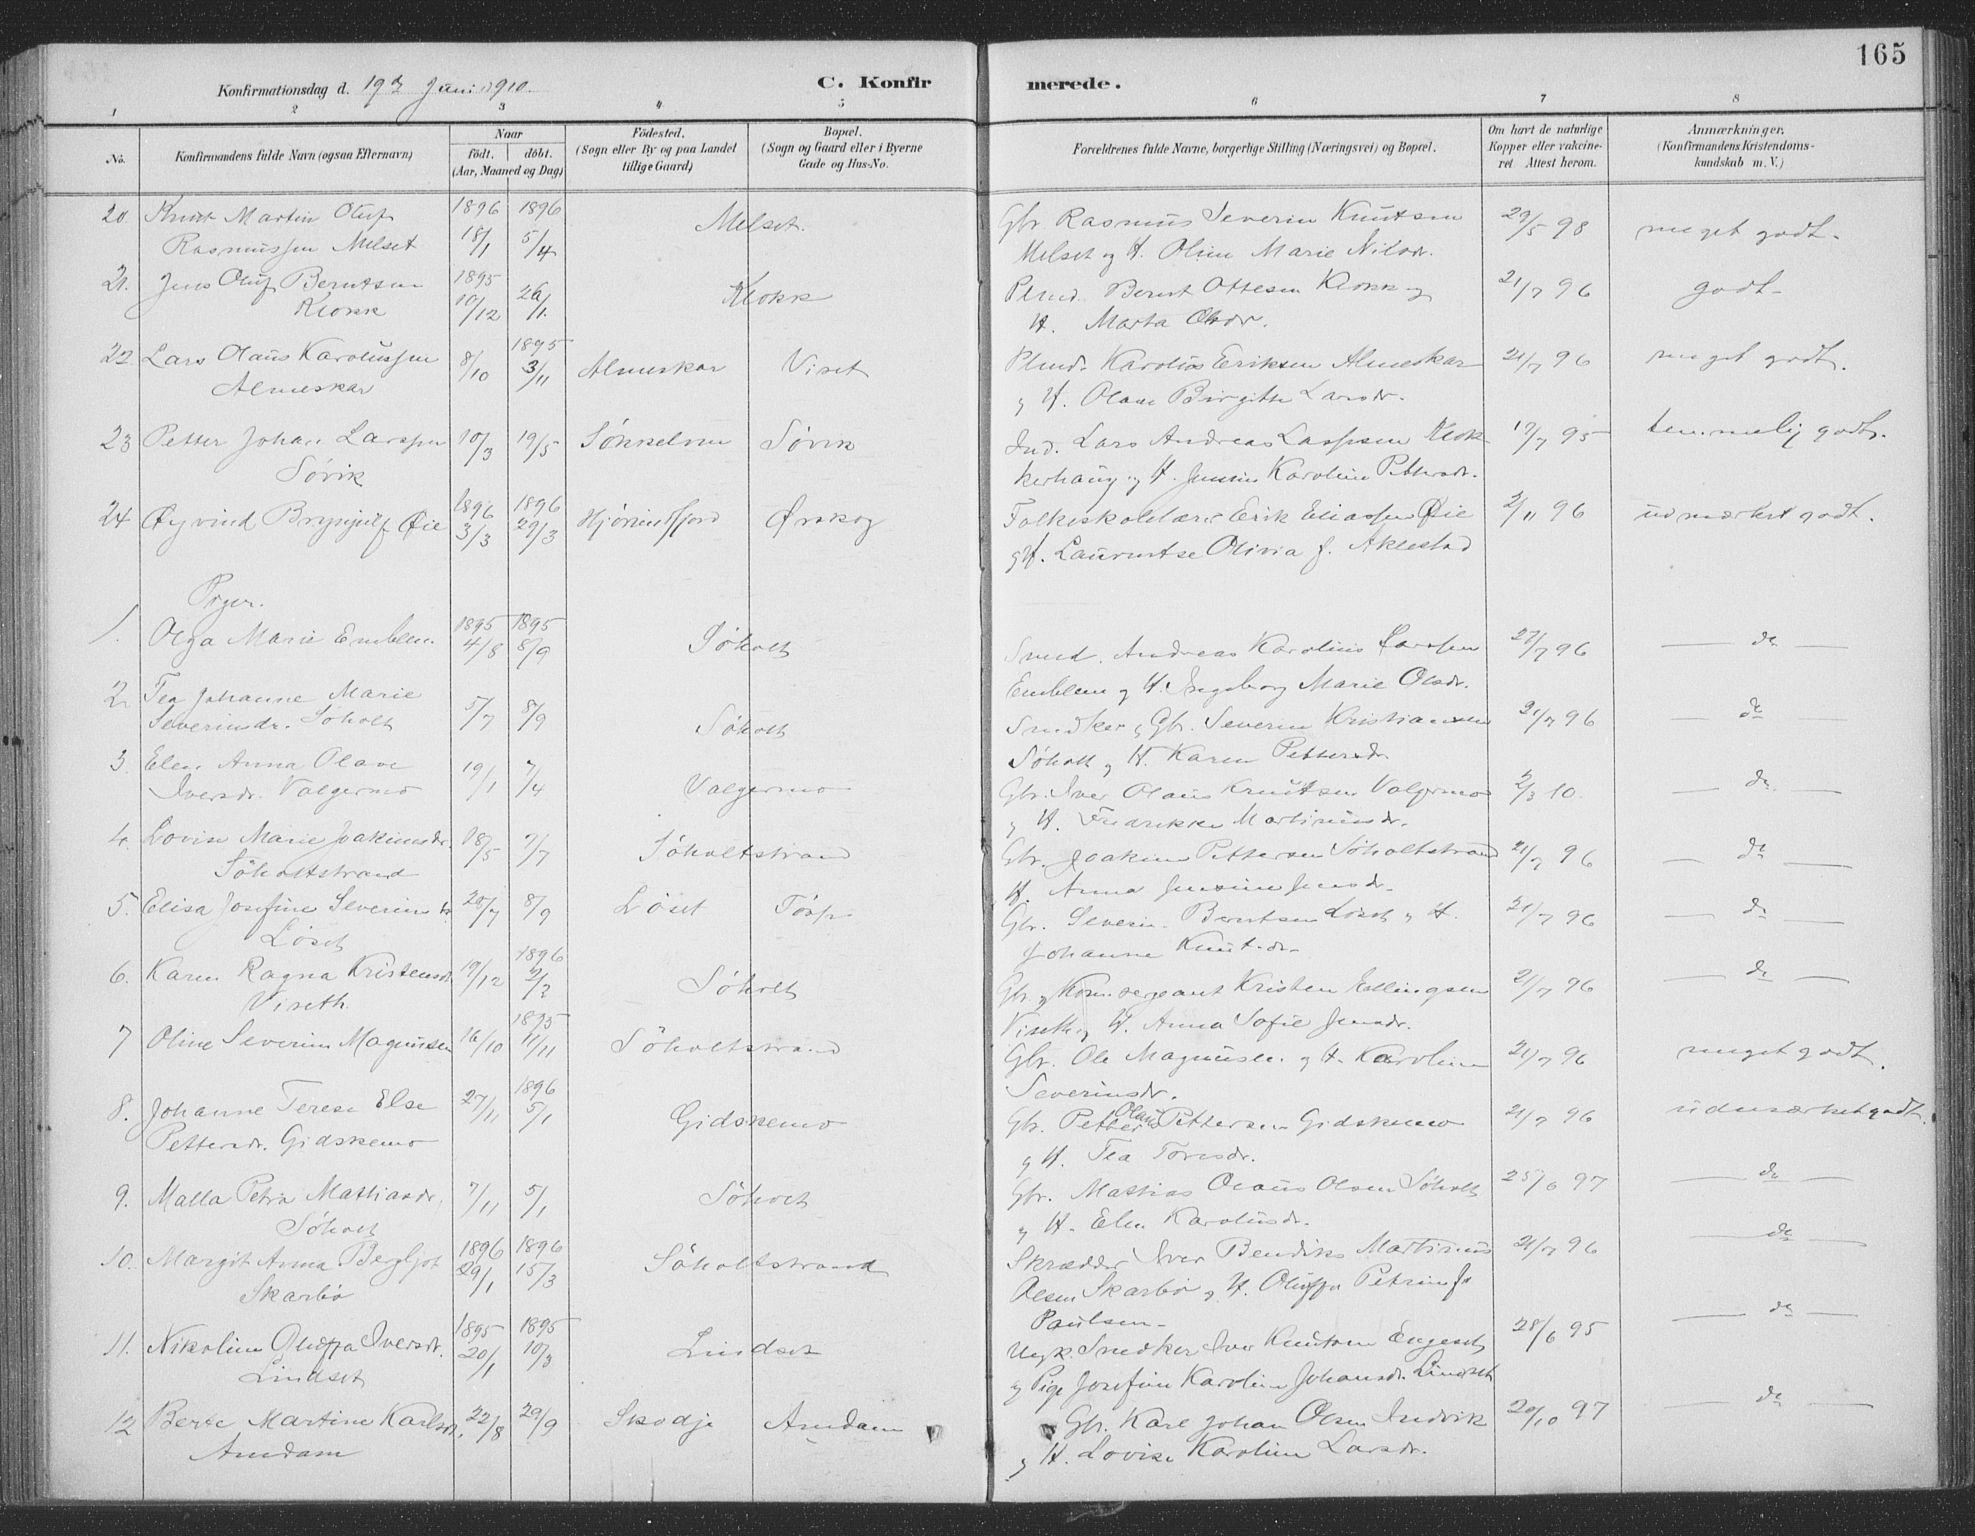 165
Konfirmationsdag d. 19de Juni 1910.
C. Konfirmerede.
1 2 3 4 5 6 7 8
No.
Konfirmandens fulde Navn (ogsaa Efternavn)
Naar
födt. döbt.
(Aar, Maaned og Dag)
Födested.
(Sogn eller By og paa Landet
tillige Gaard)
Bopæl.
(Sogn og Gaard eller i Byerne
Gade og Hus-No.
Forældrenes fulde Navne, borgerlige Stilling (Næringsvei) og Bopæl.
Om havt de naturlige
Kopper eller vakcine-
ret Attest herom.
Anmærkninger.
(Konfirmandens Kristendoms-
kundskab m. V.)
20. Knut Martin Oluf 1896 1896 Melset. Gbr Rasmus Severin Knutsen 29/5 98 meget godt.
Rasmussen Melset 18/1 5/4 Melset og H. Oline Marie Nilsdr.
21. Jens Oluf Berntsen 1895 Klokk Plmd. Bernt Ottesen Klokk og 21/7 96 godt
Klokk 10/12 26/1 H. Marta Olsdr.
22. Lars Olaus Karolussen 8/10 1895 3/11 Almeskar Viset Plmd. Karolus Eriksen Almeskar 21/7 96 meget godt.
Almeskar og H. Olave Birgitte Larsdr.
23 Petter Johan Larssen 10/3 19/5 Sökkelven Sövik Ind. Lars Andreas Larssen Klok- 95 temmelig godt.
Sövik kerhaug og H. Karoline Pettersdr.
24 Øyvind Brynjulf Øie 1896 3/3 1896 29/3 Hjörundfjord Ørskog Folkeskolelærer Erik Eliassen Øie 2/11 96 udmærket godt.
og H. Laurentse Olivia f. Aklestad
Piger.
1. Olga Marie Emblem. 1895 4/8 1895 8/9 Söholt Smed. Andreas Karolius Larssen 27/7 96 do
Emblem og H. Ingeborg Marie Olsdr.
2 Tea Johanne Marie 5/7 8/9 Söholt Snedker og Gbr. Severin Kristiansen 21/7 96 do
Severinsdr. Söholt Söholt og H. Karen Pettersdr.
3. Elen Anna Olave 19/1 7/4 Valgermo Gbr. Iver Olaus Knutsen Valgermo 2/3 10. do
Iversdr. Valgermo og H. Fredrikke Martinusdr.
4. Lovise Marie Joakimsdr. 18/5 7/7 Söholtstrand Gbr. Joakim Pettersen Söholtstrand 21/7 96 do
Söholtstrand H. Anna Jensine Jensdr.
5. Elisa Josefine Severinsdr 20/7 8/9 Löset Gbr. Severin Berntsen Löset og H. 21/7 96 do
Löset Johanne Knutsdr.
6. Karen Ragna Kristensdr 19/12 1896 2/2 Söholt Gbr. og Kom. sergeant Kristen Ellingsen 21/7 96 do
Viseth. Viseth og H. Anna Sofie Jensdr.
7 Oline Severine Magnusen 16/10 1895 11/11 Söholtstrand Gbr. Ole Magnusen og H. Karoline 21/7 96 meget godt.
Severinsdr.
8. Johanne Terese Else 27/11 1896 5/1 Gidskemo Gbr. Petter Olaus Pettersen Gidskemo 21/7 96 udmærket godt.
Pettersdr. Gidskemo og H. Tea Toresdr.
9. Malla Petra Mattiasdr. 7/11 5/1 Söholt Gbr. Mattias Olaus Olsen Söholt 25/6 97 do
Söholt og H. Elen Karolusdr.
10. Margit Anna Bergljot 1896 29/1 1896 15/3 Söholtstrand Skrædder Iver Bendik Martinus 21/7 96 do
Skarbö Olsen Skarbö og H. Oluffa Petrine f.
Paulsen
11. Nikoline Oluffa Iversdr. 1895 20/1 1895 10/3 Lindset Ungk. Snedker Iver Knutsen Engeset 28/6 95 do
Lindset og Pige Josefine Karoline Johansdr. Lindset
12 Berte Martine Karlsdr. 22/8 29/9 Skodje Amdam Gbr. Karl Johan Olsen Indvik 20/10 97 do
Amdam og H. Lovise Karoline Larsdr.